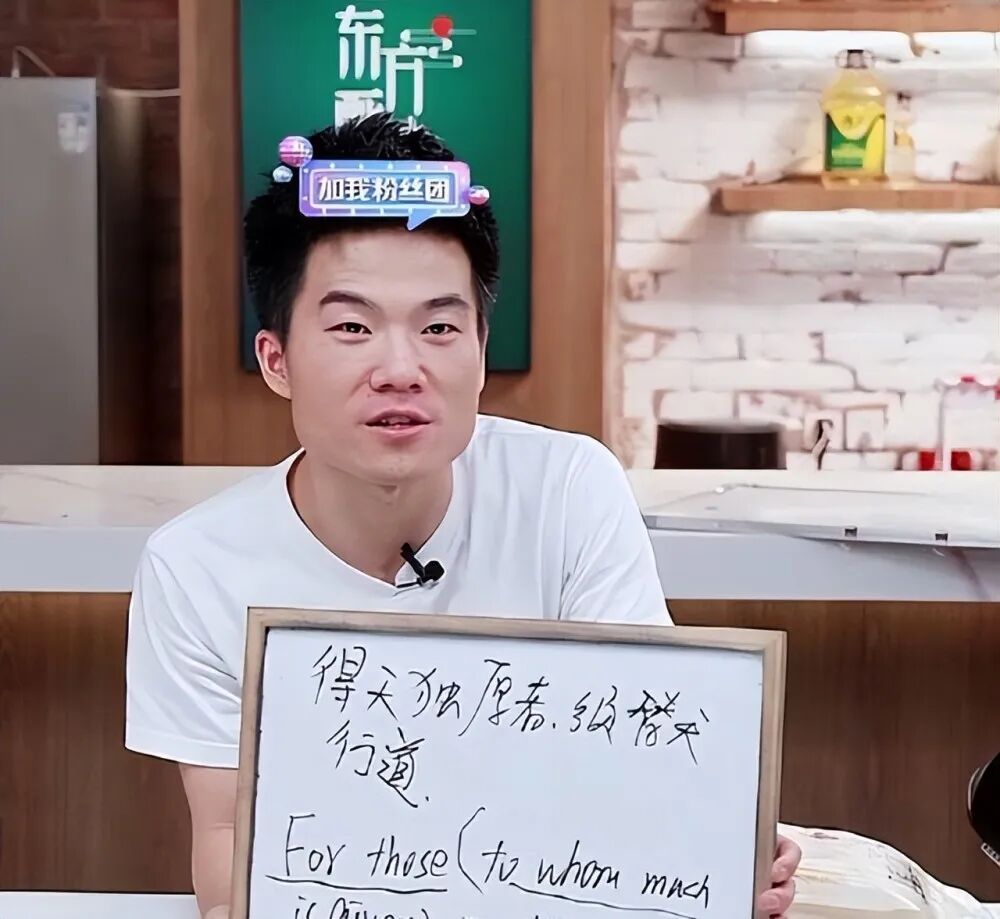 东方
加我粉丝团
得天独厚者、须替天
行道.
For those (to whom much
is given)